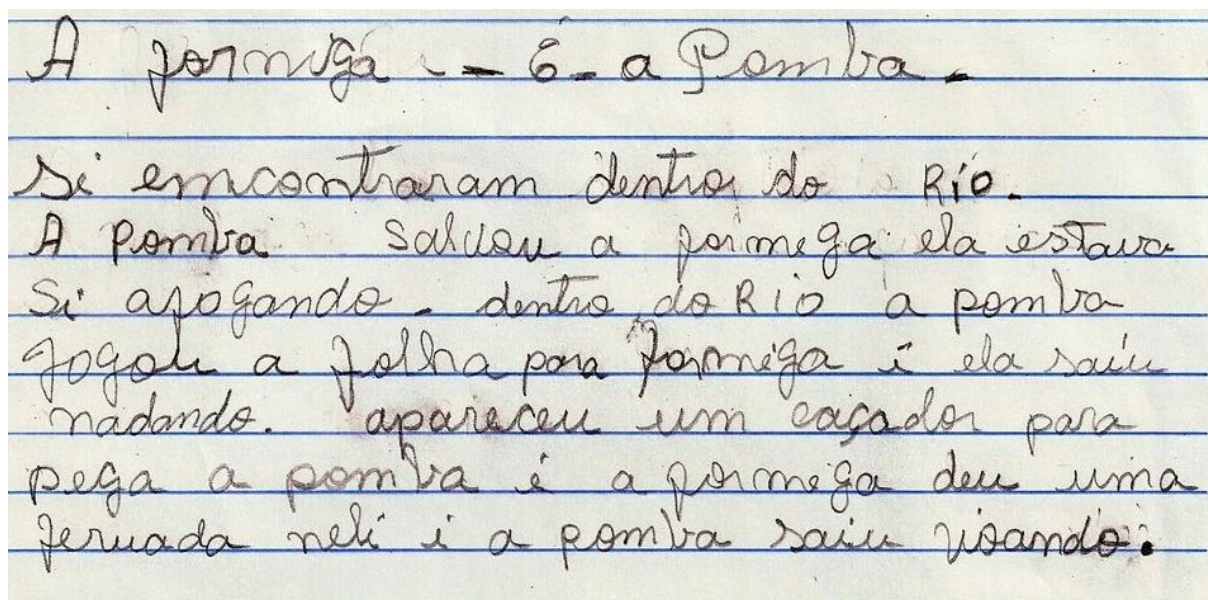 A formiga - - é - a Pomba -
Si emcontraram dentro do Rio.
A pomba salvou a formega ela estava
Si afogando - dentro do Rio a pomba
Jogou a folha para formega i ela saiu
nadando. apareceu um caçador para
pega a pomba é a formega deu uma
feruada neli i a pomba saiu voando.